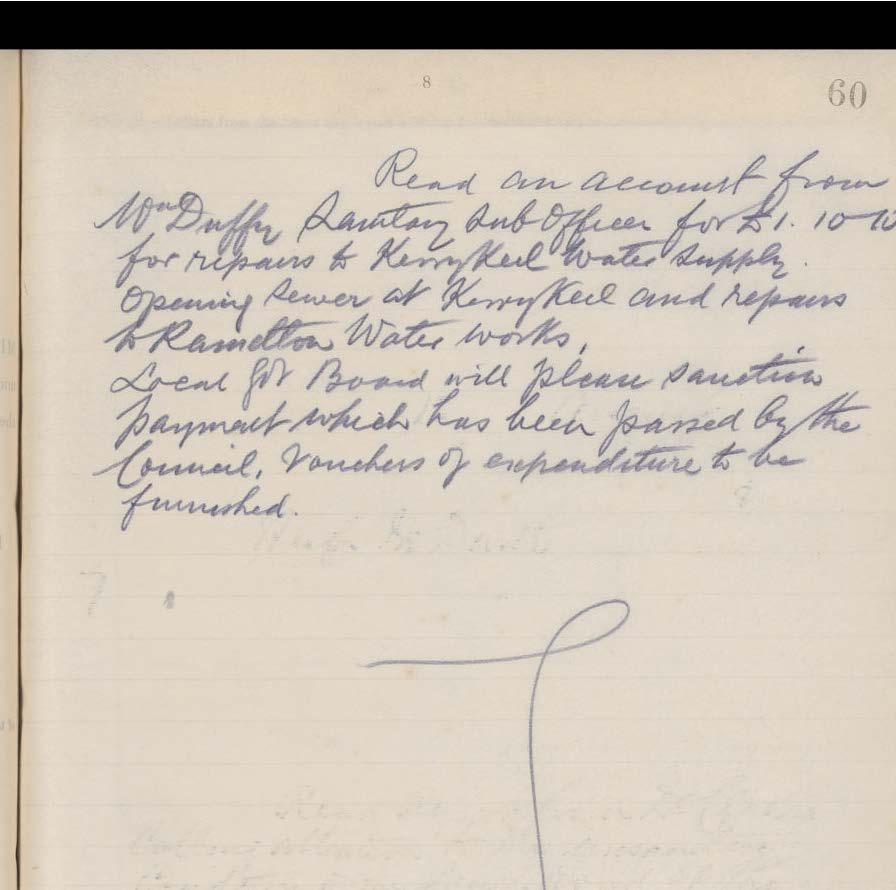 8
60
Read an account from
Wm Duffy Sanitary Sub Officer for £1. 10
for repairs to Kerrykeel Water Supply.
Opening Sewer at Kerrykeel and repairs
to Ramelton Water works.
Local Govt Board will please sanction
payment which has been passed by the
Council, Vouchers of expenditure to be
furnished.